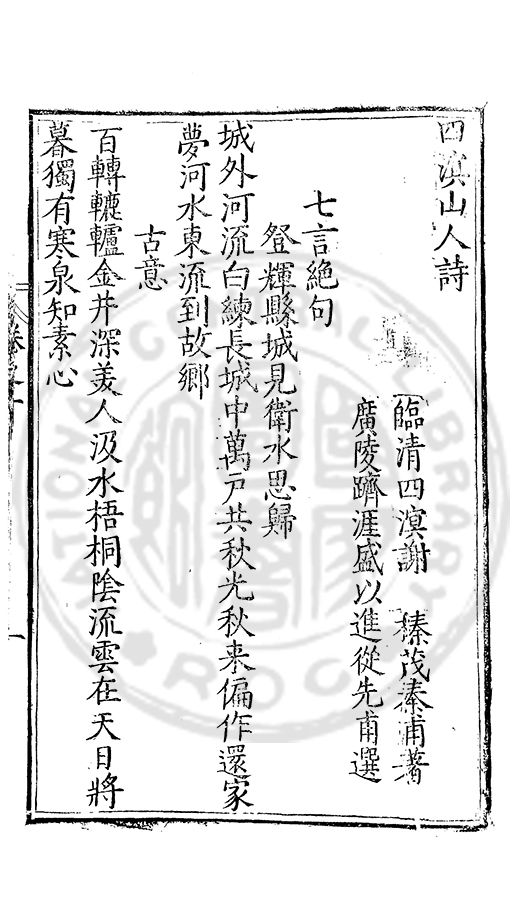 四溟山人詩
臨清四溟謝　榛茂秦甫著
廣陵躋涯盛以進從先甫選
七言絕句
登輝縣城見衛水思歸
城外河流白練長城中萬戶共秋光秋来偏作還家
夢河水東流到故鄉
古意
百轉轆轤金井深美人汲水梧桐陰流雲在天日將
暮獨有寒泉知素心
卷之一
一